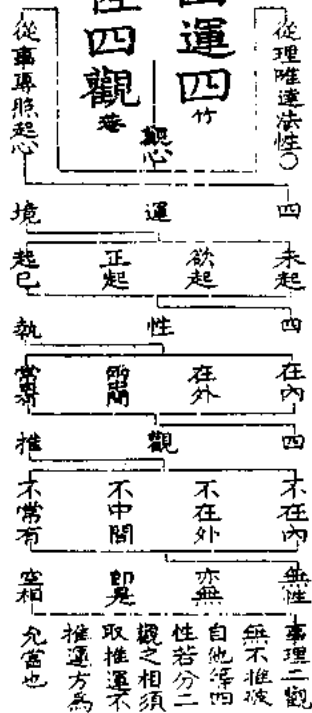 運四竹
性四觀菴
從理唯達法性〇
觀心
從事專照起心
四運境
未起
欲起
正起
起已
四性執
在內
在外
四觀推
不在內
不在外
不中間
不常有
無性
亦無
即是
空相
事理二觀
無不推破
自他等四
性若分二
觀之相須
取推運不
推運方為
允當也